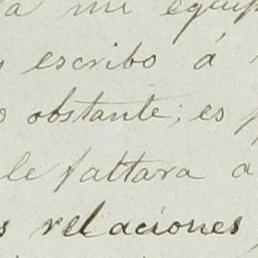 a mi equip
escribo á
obstante; es
le faltara a
relaciones